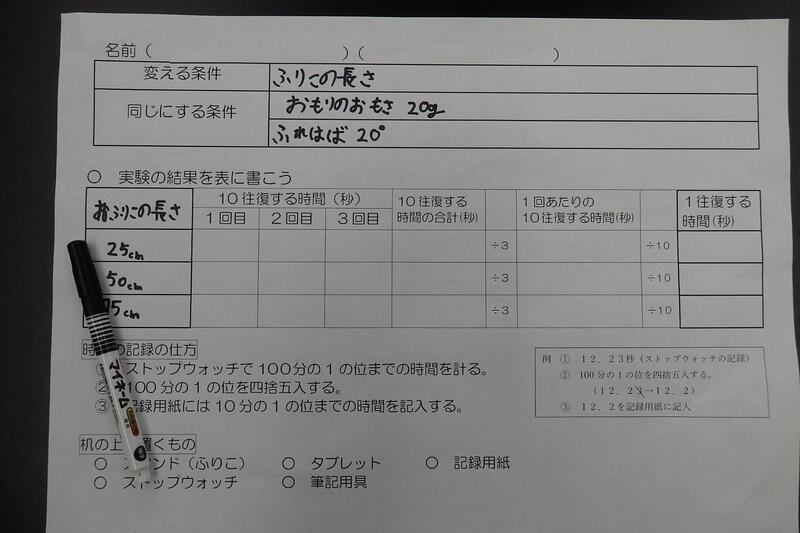 名前（　　　　　　　　　　　　）（　　　　　　　　　　　　）
変える条件 ふりこの長さ
同じにする条件 おもりのおもさ 20g
ふれはば 20°
○ 実験の結果を表に書こう
ふりこの長さ 10往復する時間（秒） 10往復する時間の合計(秒) 1回あたりの10往復する時間(秒) 1往復する時間(秒)
1回目 2回目 3回目
25cm ÷3 ÷10
50cm ÷3 ÷10
75cm ÷3 ÷10
の記録の仕方
ストップウォッチで100分の1の位までの時間を計る。
② 100分の1の位を四捨五入する。
③ 記録用紙には10分の1の位までの時間を記入する。
例 ① 12．23秒（ストップウォッチの記録）
② 100分の1の位を四捨五入する。
（12．23→12．2）
③ 12．2を記録用紙に記入
机の上 置くもの
○ ンド（ふりこ） ○ タブレット ○ 記録用紙
○ ストップウォッチ ○ 筆記用具
マイネーム